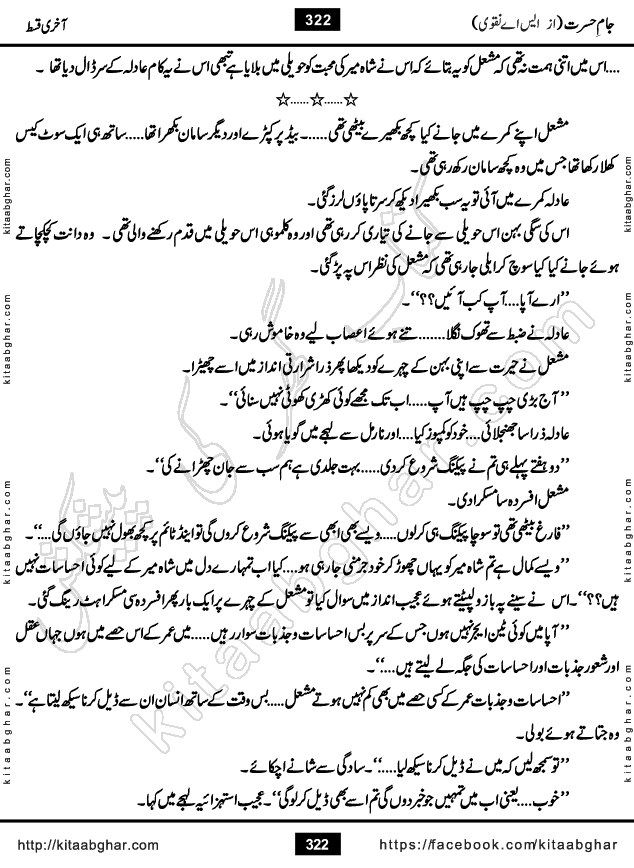 جامِ حسرت (از ایس اے نقوی)
322
آخری قسط
....اس میں اتنی ہمت نہ تھی کہ مشعل کو یہ بتائے کہ اس نے شاہ میر کی محبت کو حویلی میں بلایا ہے تبھی اس نے یہ کام عادلہ کے سر ڈال دیا تھا ۔
☆......☆......☆
مشعل اپنے کمرے میں جانے کیا کچھ بکھیرے بیٹھی تھی.....۔ بیڈ پر کپڑے اور دیگر سامان بکھرا تھا.....ساتھ ہی ایک سوٹ کیس
کھلا رکھا تھا جس میں وہ کچھ سامان رکھ رہی تھی۔
عادلہ کمرے میں آئی تو یہ سب بکھیرا دیکھ کر سرتا پاؤں لرز گئی۔
اس کی سگی بہن اس حویلی سے جانے کی تیاری کر رہی تھی اور وہ کلموہی اس حویلی میں قدم رکھنے والی تھی۔ وہ دانت کچکچاتے
ہوئے جانے کیا کیا سوچ کر ابلی جا رہی تھی کہ مشعل کی نظر اس پہ پڑ گئی۔
’’ارے آپا....آپ کب آئیں؟؟‘‘۔
عادلہ نے ضبط سے تھوک نگلا........تنے ہوئے اعصاب لیے وہ خاموش رہی۔
مشعل نے حیرت سے اپنی بہن کے چہرے کو دیکھا پھر ذرا شرارتی انداز میں اسے چھیڑا۔
’’آج بڑی چپ چپ ہیں آپ.....اب تک مجھے کوئی کھڑی کھوٹی نہیں سنائی‘‘۔
عادلہ ذرا سا جھنجلائی....خود کو کمپوز کیا....اور نارمل سے لہجے میں گویا ہوئی۔
’’دو ہفتے پہلے ہی تم نے پیکنگ شروع کر دی......بہت جلدی ہے ہم سب سے جان چھڑانے کی‘‘۔
مشعل افسردہ سا مسکرا دی۔
’’فارغ بیٹھی تھی تو سوچا پیکنگ ہی کر لوں.....ویسے بھی ابھی سے پیکنگ شروع کروں گی تو اینڈ ٹائم پر کچھ بھول نہیں جاؤں گی....‘‘۔
’’ویسے کمال ہے تم شاہ میر کو یہاں چھوڑ کر خود جرمنی جا رہی ہو....کیا اب تمہارے دل میں شاہ میر کے لیے کوئی احساسات نہیں
ہیں؟؟‘‘۔اس نے سینے پہ بازو لپیٹتے ہوئے عجیب انداز میں سوال کیا تو مشعل کے چہرے پر ایک بار پھر افسردہ سی مسکراہٹ رینگ گئی۔
’’آپا میں کوئی ٹین ایجر نہیں ہوں جس کے سر پر بس احساسات و جذبات سوار رہیں......میں عمر کے اس حصے میں ہوں جہاں عقل
اور شعور جذبات اور احساسات کی جگہ لے لیتے ہیں....‘‘۔
’’احساسات و جذبات عمر کے کسی حصے میں بھی کم نہیں ہوتے مشعل.....بس وقت کے ساتھ انسان ان سے ڈیل کرنا سیکھ لیتا ہے‘‘۔
وہ جتاتے ہوئے بولی۔
’’تو سمجھ لیں کہ میں نے ڈیل کرنا سیکھ لیا.....‘‘۔سادگی سے شانے اچکائے۔
’’خوب....یعنی اب میں تمہیں جو خبر دوں گی تم اسے بھی ڈیل کر لو گی‘‘۔عجیب استہزائیہ لہجے میں کہا۔
http://kitaabghar.com
322
https://facebook.com/kitaabghar
kitaabghar.com
kitaabghar.com
kitaabghar.com
kitaabghar.com
kitaabghar.com
kitaabghar.com
kitaabghar.com
kitaabghar.com
کتاب گھر کی پیشکش
kitaabghar.com